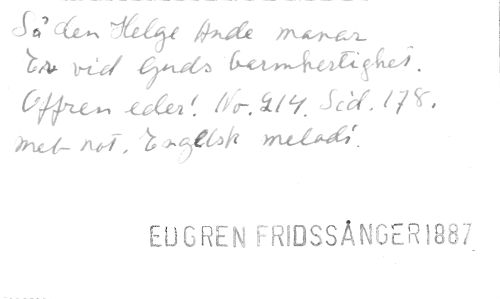 Så den Helge Ande manar
Er vid Guds barmhertighet.
Offren eder! No. 214. Sid. 178.
met not. Engelsk melodi.
EUGREN FRIDSSÅNGER 1887